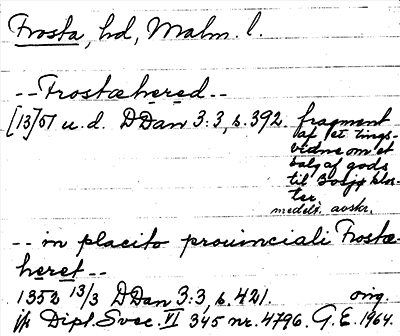 Frosta, hd, Malm. l.
--Frostæhered--
[13]51 u.d. DDan 3:3, s. 392. fragment
af et tings-
vidne om et
salg af gods
til Bosjø klos-
ter.
medelt. avskr.
-- in placito prouinciali Frostæ-
heret --
1352 13/3 DDan 3:3, s. 421. orig.
jfr Dipl. Svec. VI 345 nr. 4796. G.E. 1964.